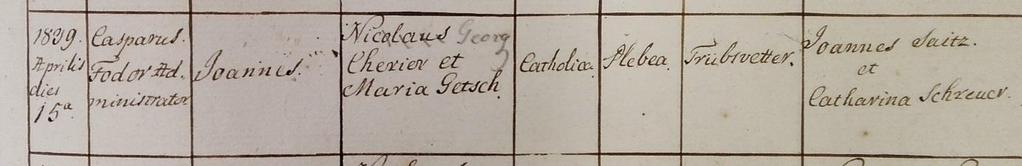 1839.
Aprilis
dies
15ª
Casparus.
Fodor Ad-
ministrator
Joannes.
Nicolaus Georg
Cherier et
Maria Getsch.
Catholicæ.
Plebea.
Trübswetter.
Joannes Saitz.
et
Catharina Schreuer.